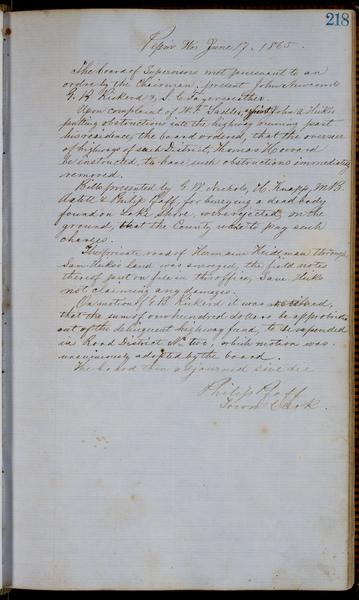 218
Pepin Wis June 17, 1865.
The board of Supervisors met pursuant to an
order by the Chairman, present John Newcomb
E. B. Rickord & S. C. Fayerweather.
Upon complaint of W. F. Sadler, against John A. Heike
putting obstructions into the highway running past
his residence, the board ordered, that the overseer
of highways of such District, Thomas Howard
be instructed, to have such obstructions immediately
removed.
Bills presented by G. W. Nichols, H. Knapp, M. B.
& Philip Goff, for burying a dead body
found on Lake Shore, were rejected, on the
ground, that the County ought to pay such
charges.
The private road of Hermann Heideman through
Sam Heike's Land was surveyed, the field notes
thereof put on file in this office, Sam Heike
not claiming any damages.
On motion of E. B. Rickord it was ordered,
that the sum of one hundred dollars be appropriated
out of the delinquent highway fund, to be expended
in Road District No two, which motion was
unanimously adopted by the board.
The board then adjourned sine die
Philip Goff
Town Clerk.